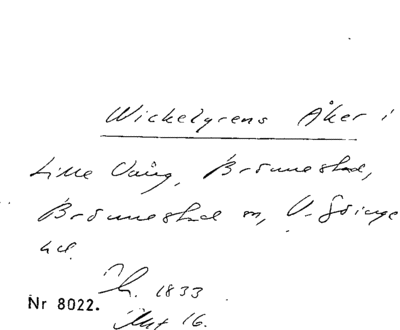 Wickelgrens Åker i
Lille Vång, Brönnestad,
Brönnestad sn, V. Göinge
hd.
1833
Nr 8022.
Akt 16.